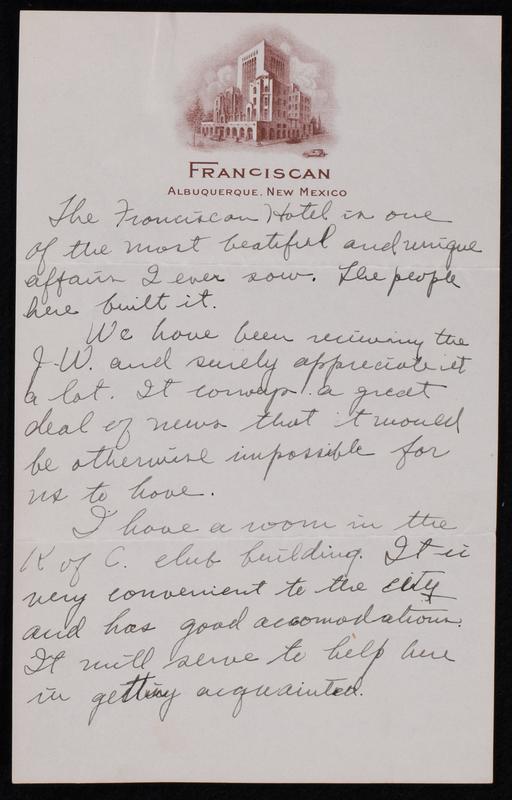 FRANCISCAN
ALBUQUERQUE, NEW MEXICO
The Franciscan Hotel is one
of the most beatiful and unique
affairs I ever saw. The people
here built it.
We have been receiving the
J-W. and surely appreciate it
a lot. It conveys a great
deal of news that it would
be otherwise impossible for
us to have.
I have a room in the
K of C. club building. It is
very convenient to the city
and has good accomodations.
It will serve to help here
in getting acquainted.